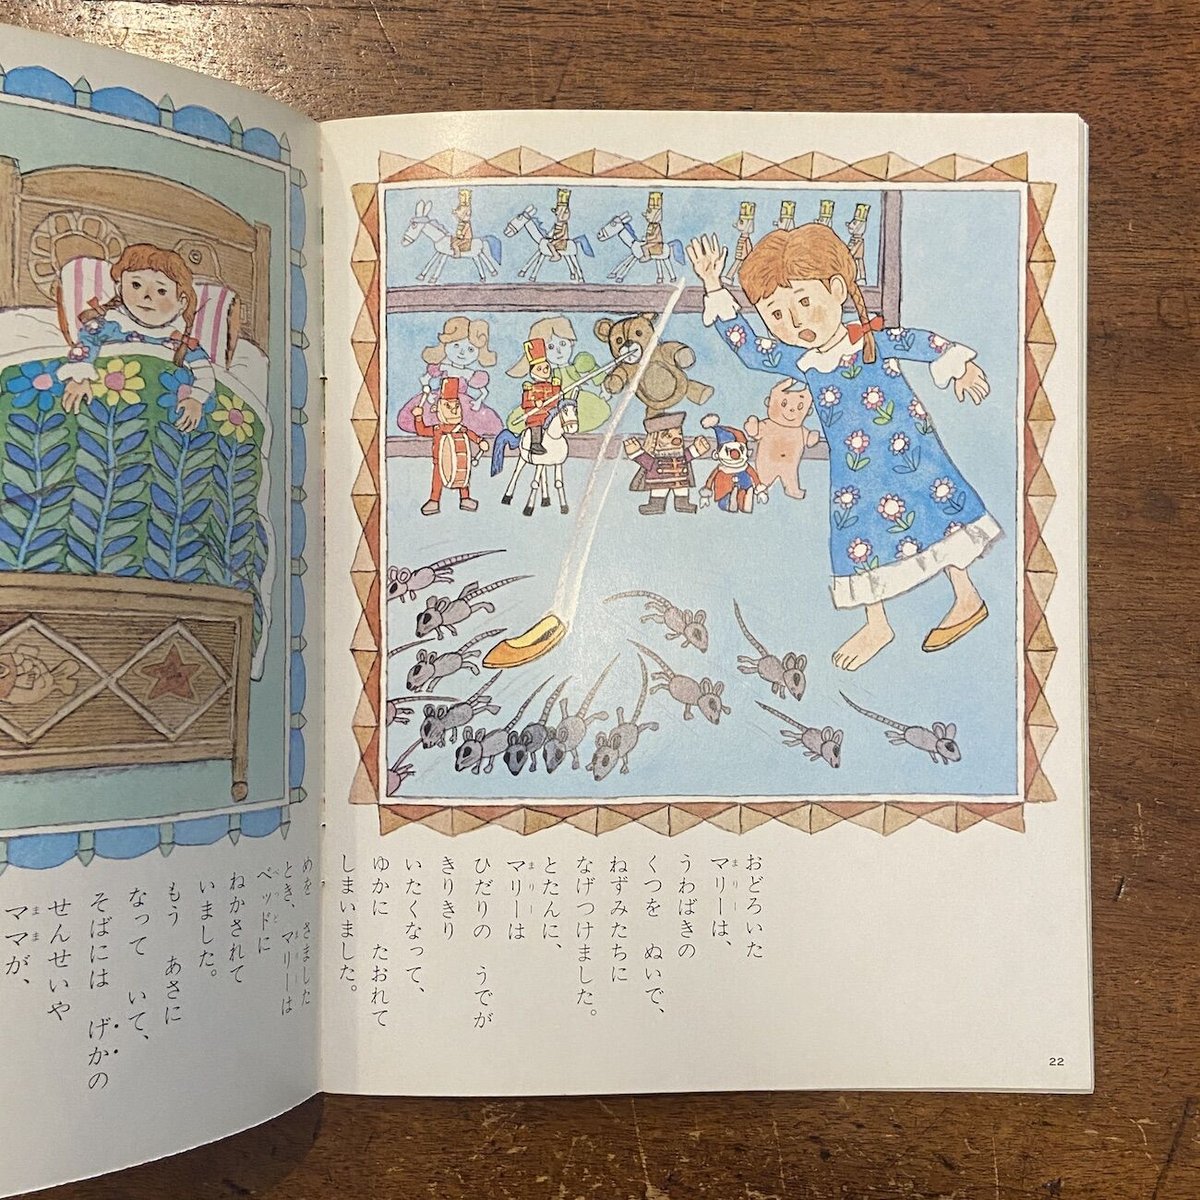 おどろいた
マリーは、
うわばきの
くつを ぬいで、
ねずみたちに
なげつけました。
とたんに、
マリーは
ひだりの うでが
きりきり
いたくなって、
ゆかに たおれて
しまいました。
めを さました
とき、マリーは
ベッドに
ねかされて
いました。
もう あさに
なって いて、
そばには げかの
せんせいや
ママが、
22